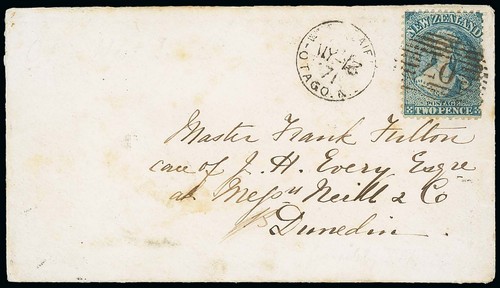 NEW ZEALAND
POSTAGE
TWO PENCE
MY
71
OTAGO. N.
Master Frank Fulton
care of J. H. Every Esqre
at Messrs Neill & Co
Dunedin